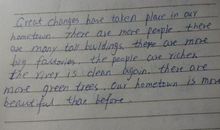 Great changes have taken place in our
hometown. There are more people there
are many tall buildings, there are more
big factories the people are richer
the river is clean again. there are
more green trees. Our hometown is more
beautiful than before.